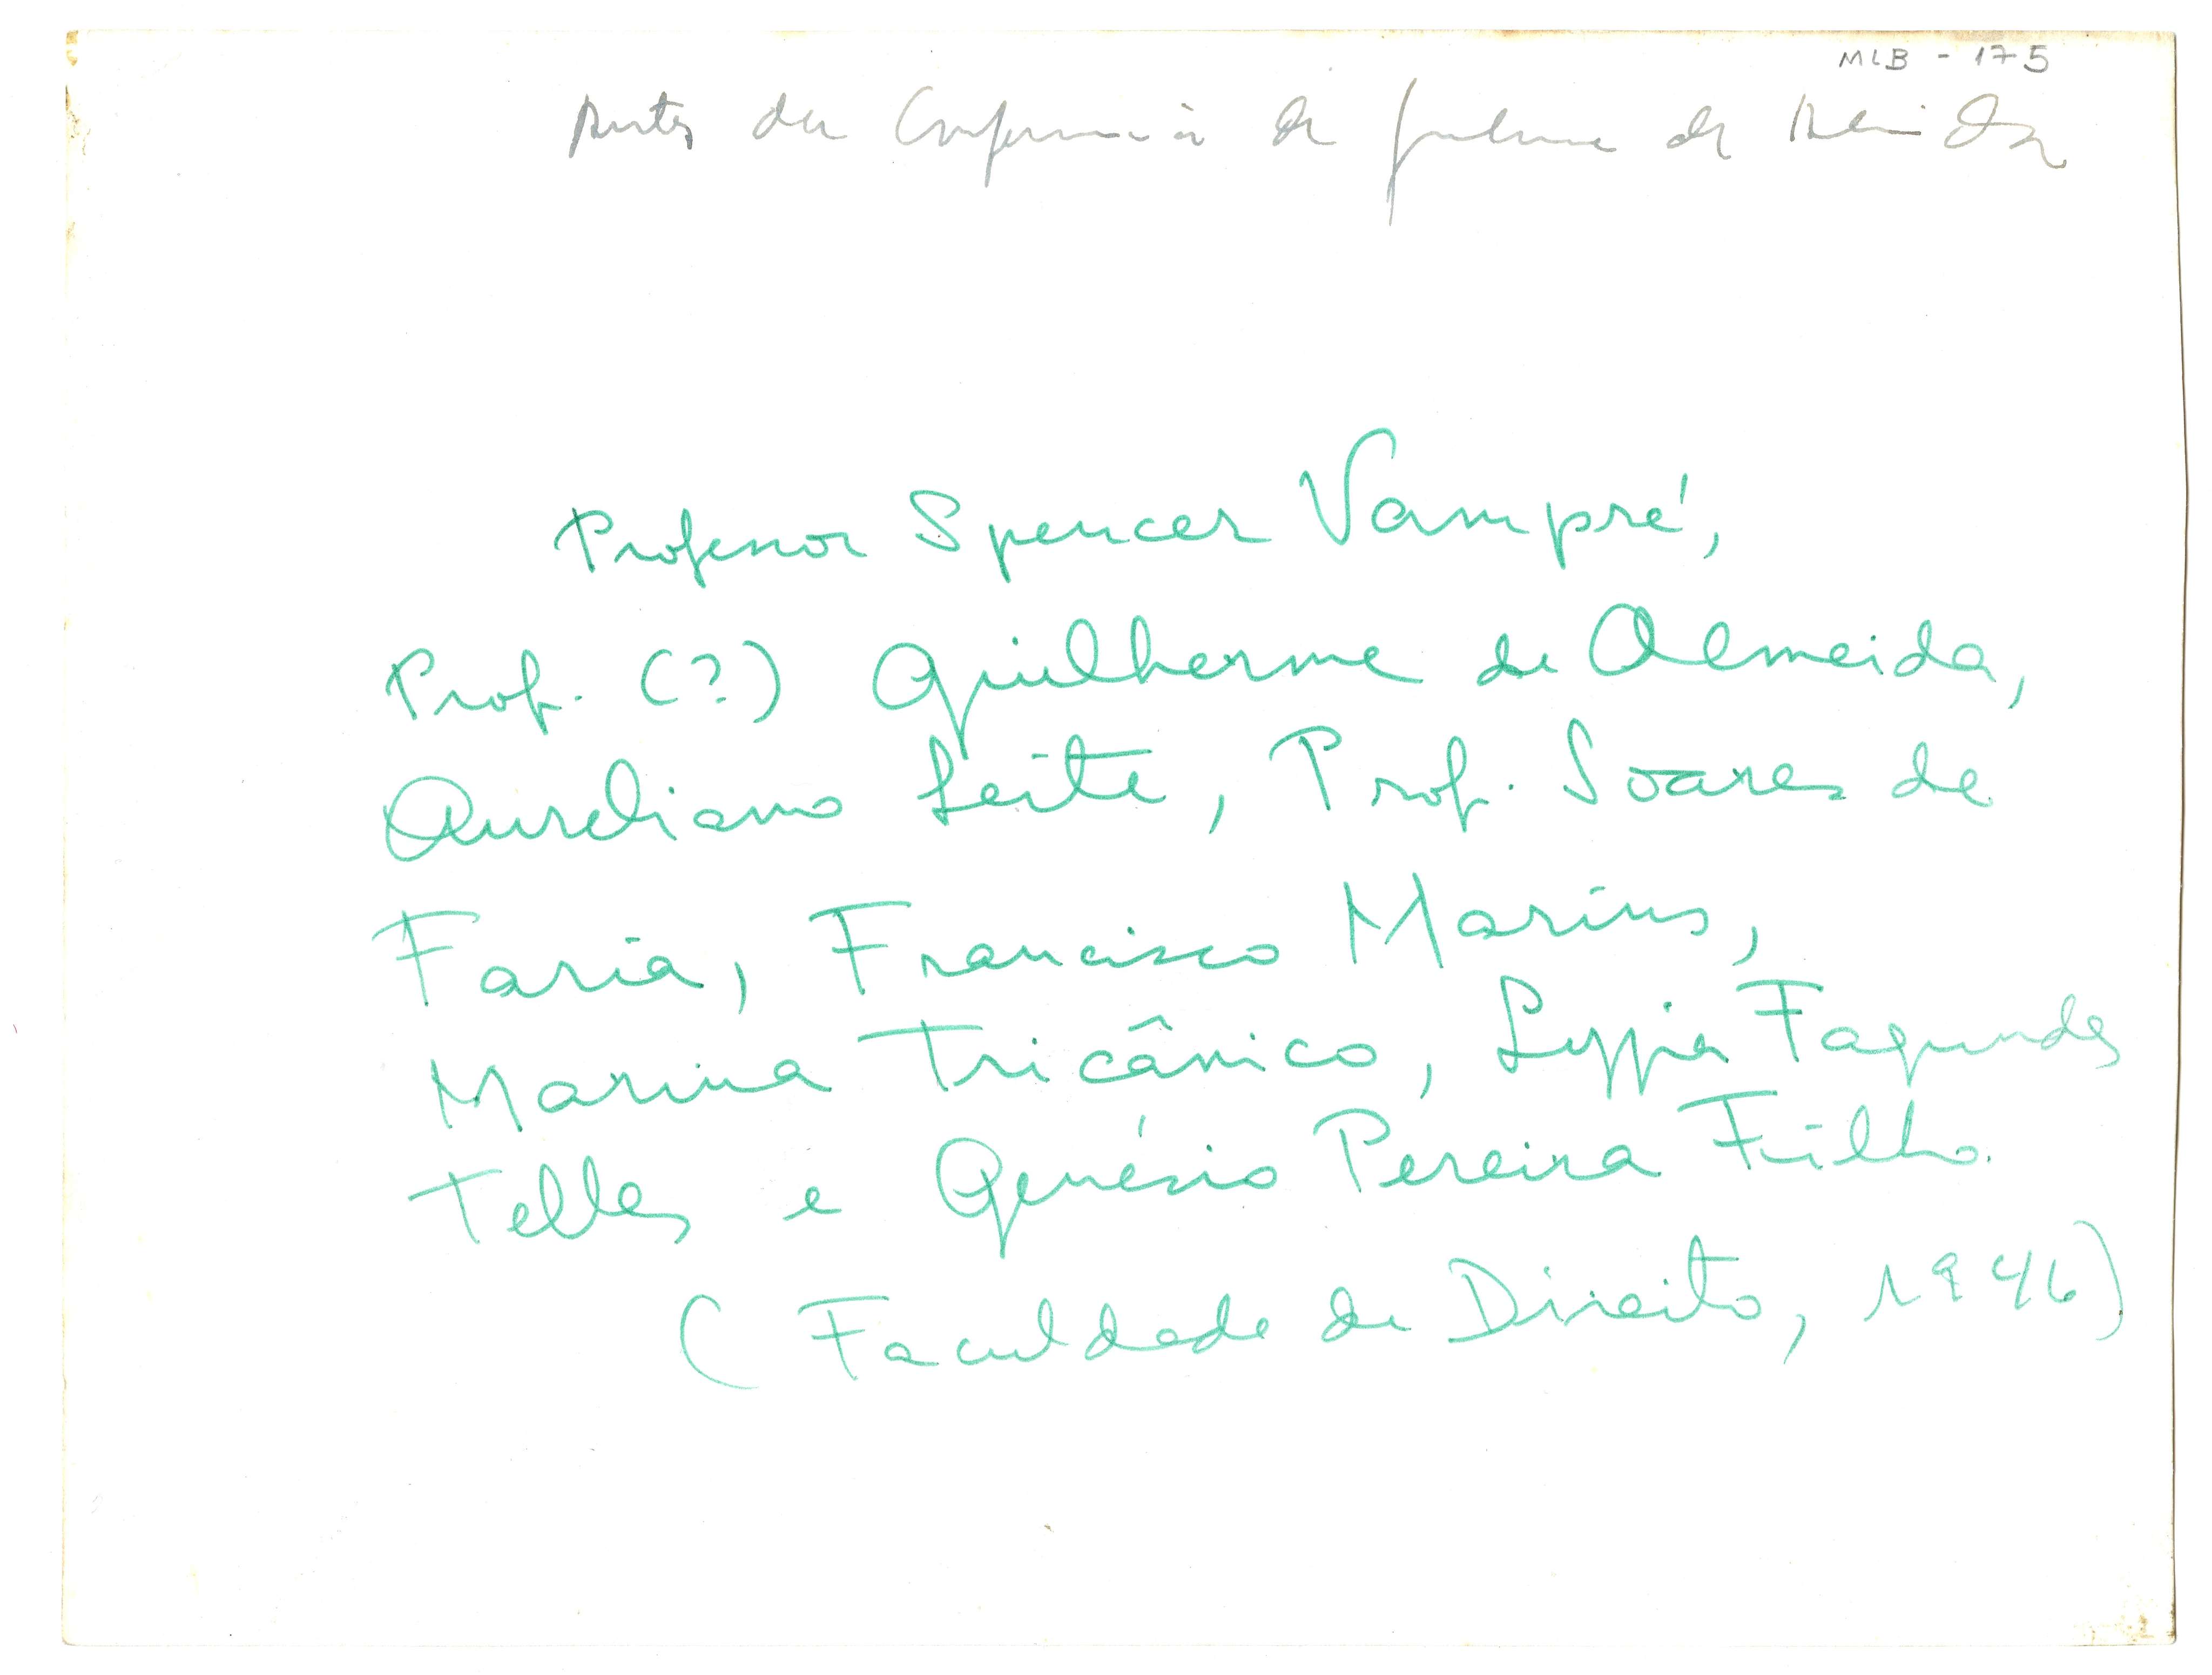 MLB - 175
Antes da Conferência de Guilherme de Almeida
Professor Spencer Vampré,
Prof. (?) Guilherme de Almeida,
Aureliano Leite, Prof. Soares de
Faria, Francisco Marins,
Marina Tricânico, Lygia Fagundes
Telles e Genésio Pereira Filho.
( Faculdade de Direito, 1946)